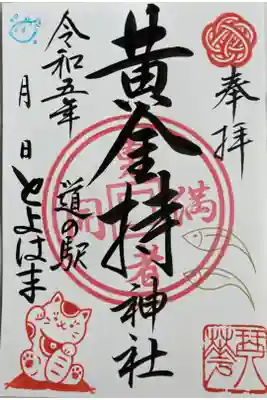 奉拝
黄金持神社
令和五年
月 日
道の駅
とよはま